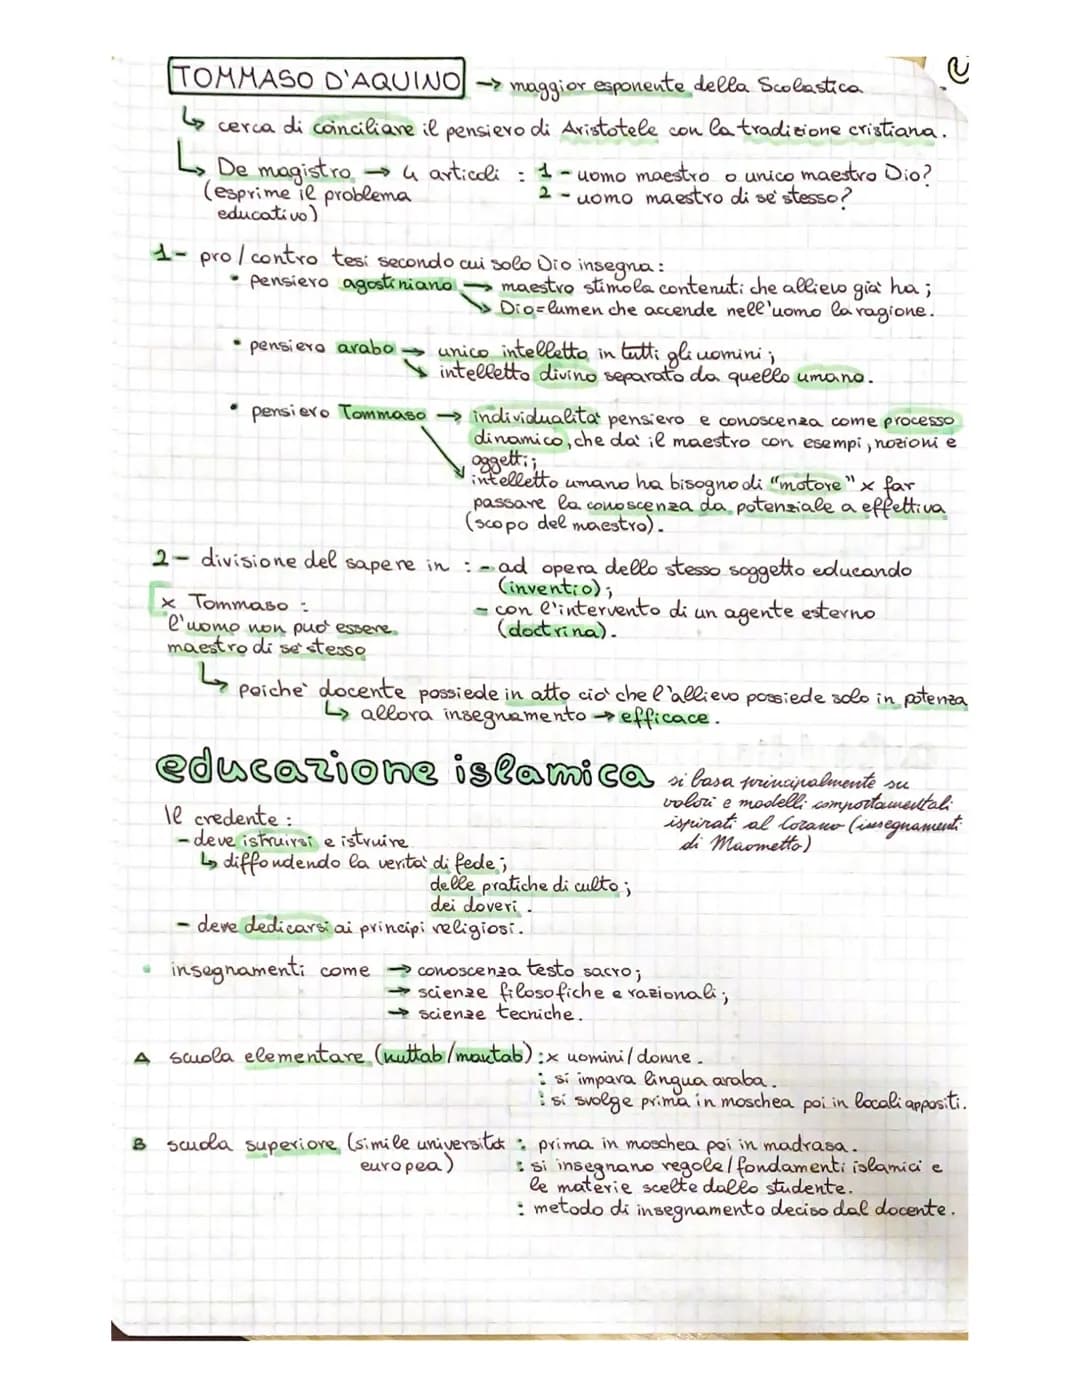 TOMMASO D'AQUINO → maggior esponente della Scolastica
↳ cerca di coinciliare il pensiero di Aristotele con la tradizione cristiana.
↳ De magistro → 4 articoli : 1 - uomo maestro o unico maestro Dio?
(esprime il problema 2 - uomo maestro di se' stesso?
educativo)
1- pro / contro tesi secondo cui solo Dio insegna:
• pensiero agostiniano → maestro stimola contenuti che allievo gia' ha;
↘ Dio=lumen che accende nell'uomo la ragione.
• pensiero arabo → unico intelletto in tutti gli uomini;
↘ intelletto divino separato da quello umano.
• pensiero Tommaso → individualita' pensiero e conoscenza come processo
dinamico, che da' il maestro con esempi, nozioni e
oggetti;
↘ intelletto umano ha bisogno di "motore" x far
passare la conoscenza da potenziale a effettiva
(scopo del maestro).
2- divisione del sapere in : - ad opera dello stesso soggetto educando
(inventio);
x Tommaso : - con l'intervento di un agente esterno
l'uomo non puo' essere (doctrina).
maestro di se' stesso
↳ poiche' docente possiede in atto cio' che l'allievo possiede solo in potenza
↳ allora insegnamento → efficace.
educazione islamica si basa principalmente su
valori e modelli comportamentali
ispirati al Corano (insegnamenti
di Maometto)
Il credente :
- deve istruirsi e istruire
↳ diffondendo la verita' di fede;
delle pratiche di culto;
dei doveri.
- deve dedicarsi ai principi religiosi.
• insegnamenti come → conoscenza testo sacro;
→ scienze filosofiche e razionali;
→ scienze tecniche.
A scuola elementare (kuttab/maktab) : x uomini/donne.
: si impara lingua araba.
: si svolge prima in moschea poi in locali appositi.
B scuola superiore (simile universita' : prima in moschea poi in madrasa.
europea) : si insegnano regole/fondamenti islamici e
le materie scelte dallo studente.
: metodo di insegnamento deciso dal docente.